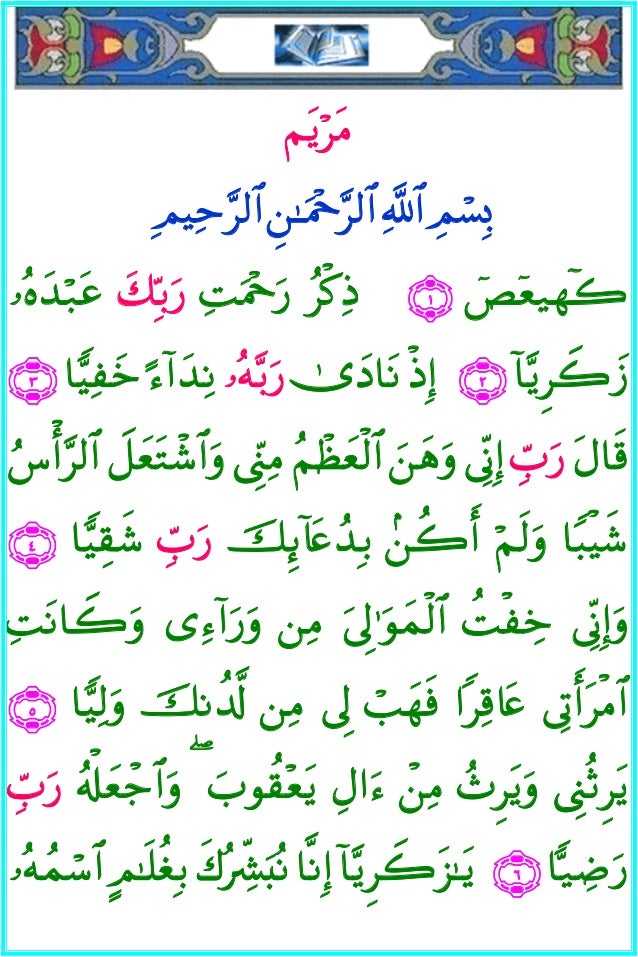 مَرْيَم
بِسْمِ ٱللَّهِ ٱلرَّحْمَـٰنِ ٱلرَّحِيمِ
كٓهيعٓصٓ ١ ذِكْرُ رَحْمَتِ رَبِّكَ عَبْدَهُۥ
زَكَرِيَّآ ٢ إِذْ نَادَىٰ رَبَّهُۥ نِدَآءً خَفِيًّا ٣
قَالَ رَبِّ إِنِّى وَهَنَ ٱلْعَظْمُ مِنِّى وَٱشْتَعَلَ ٱلرَّأْسُ
شَيْبًا وَلَمْ أَكُنۢ بِدُعَآئِكَ رَبِّ شَقِيًّا ٤
وَإِنِّى خِفْتُ ٱلْمَوَٰلِىَ مِن وَرَآءِى وَكَانَتِ
ٱمْرَأَتِى عَاقِرًا فَهَبْ لِى مِن لَّدُنكَ وَلِيًّا ٥
يَرِثُنِى وَيَرِثُ مِنْ ءَالِ يَعْقُوبَ ۖ وَٱجْعَلْهُ رَبِّ
رَضِيًّا ٦ يَـٰزَكَرِيَّآ إِنَّا نُبَشِّرُكَ بِغُلَـٰمٍ ٱسْمُهُۥ